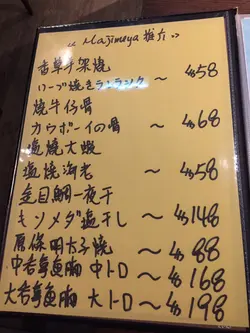 “Majimeya 推介”
香草羊架燒
ハーブ焼きラムランク ～ $58
燒牛仔骨
カウボーイの骨 ～ $68
塩燒大蝦
塩焼海老 ～ $58
金目鯛一夜干
キンメダ塩干し ～ $148
明太子燒 ～ $88
中吞拿魚腩 中トロ ～ $168
大吞拿魚腩 大トロ ～ $198